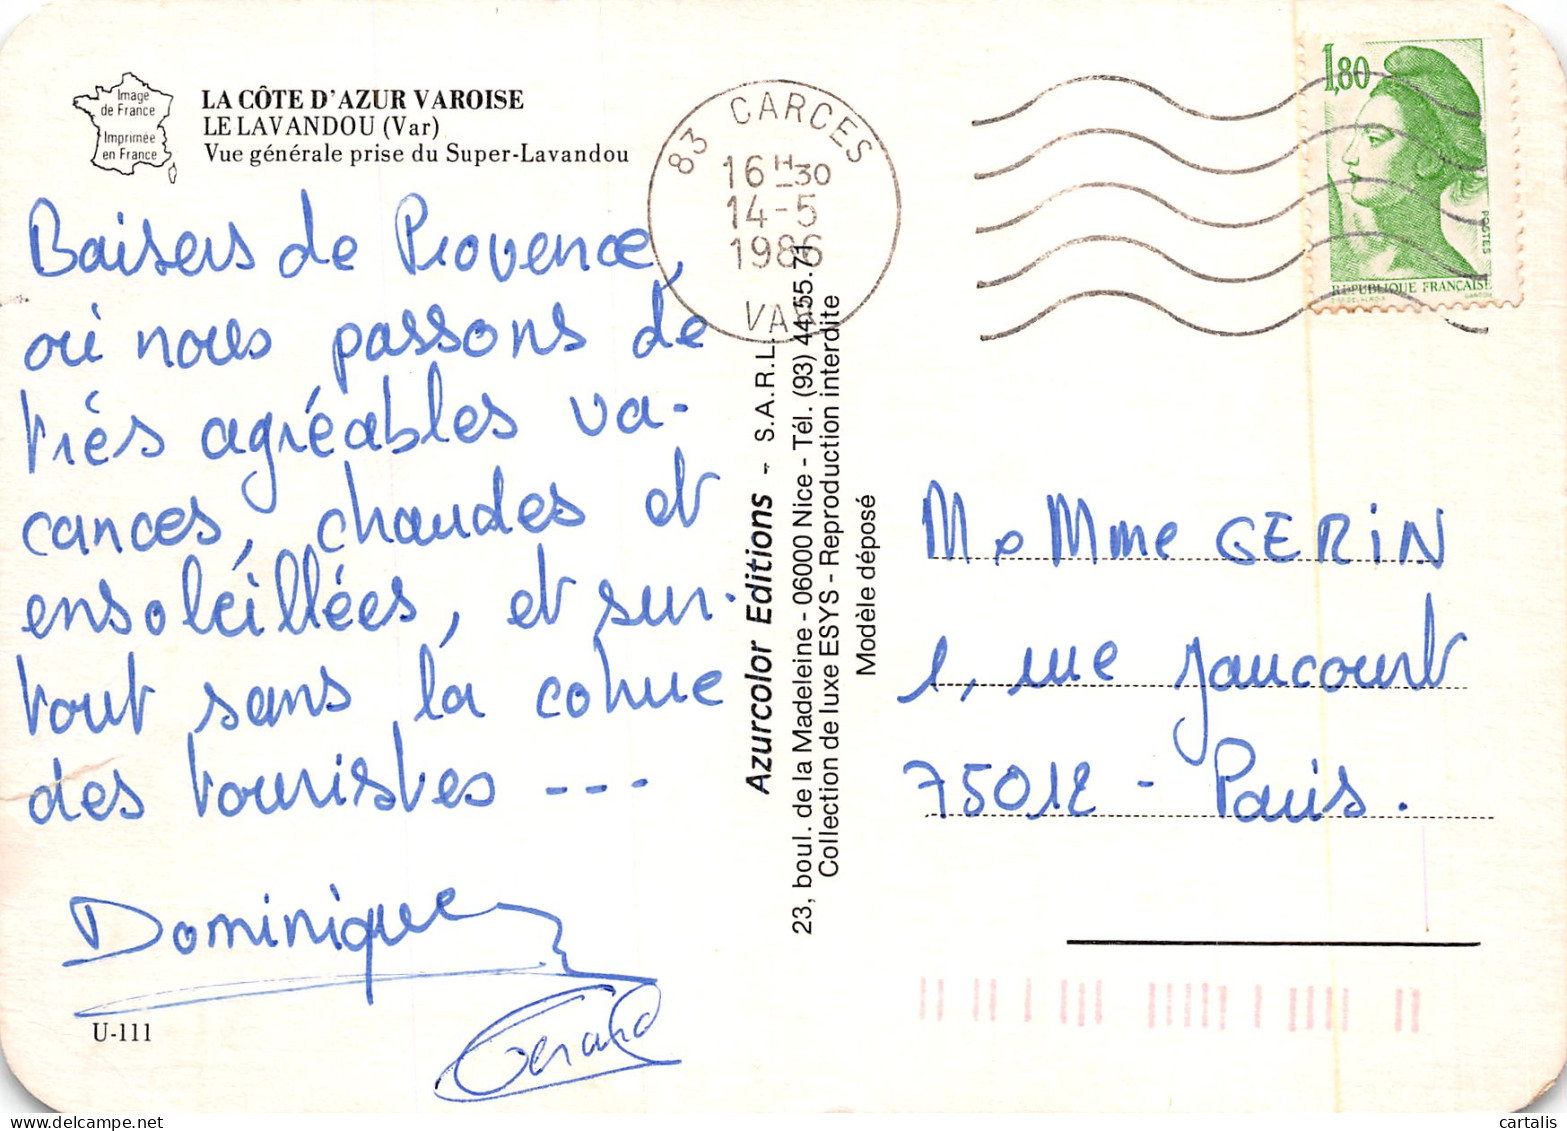 Image
de France
Imprimée
en France
LA CÔTE D'AZUR VAROISE
LE LAVANDOU (Var)
Vue générale prise du Super-Lavandou
Baisers de Provence,
où nous passons de
très agréables va-
cances, chaudes et
ensoleillées, et sur-
tout sans la cohue
des touristes ---
Dominique
Gérard
U-111
83 CARCES
16H30
14-5
1986
VAR
Azurcolor Editions - S.A.R.L.
23, boul. de la Madeleine - 06000 Nice - Tél. (93) 44.55.71
Collection de luxe ESYS - Reproduction interdite
Modèle déposé
1,80
POSTES
REPUBLIQUE FRANÇAISE
M. Mme GERIN
1, rue Jaucourt
75012 - Paris.
cartalis